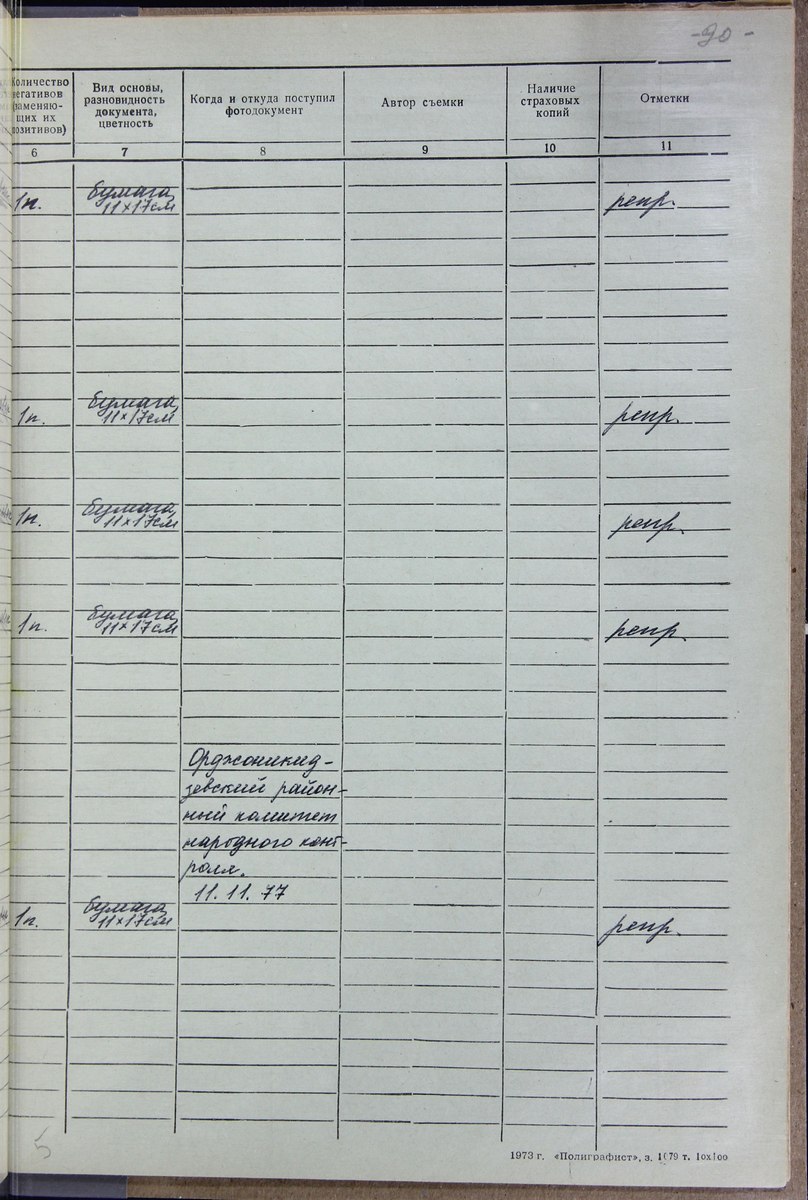 -90-
Количество негативов (заменяющих их позитивов)
Вид основы, разновидность документа, цветность
Когда и откуда поступил фотодокумент
Автор съемки
Наличие страховых копий
Отметки
6 7 8 9 10 11
1п. бумага, 11×17см репр.
1п. бумага, 11×17см репр.
1п. бумага, 11×17см репр.
1п. бумага, 11×17см репр.
Орджоникид-
зевский район-
ный комитет
народного конт-
роля.
11.11.77
1п. бумага, 11×17см репр.
5
1973 г. «Полиграфист», з. 1079 т. 10х100